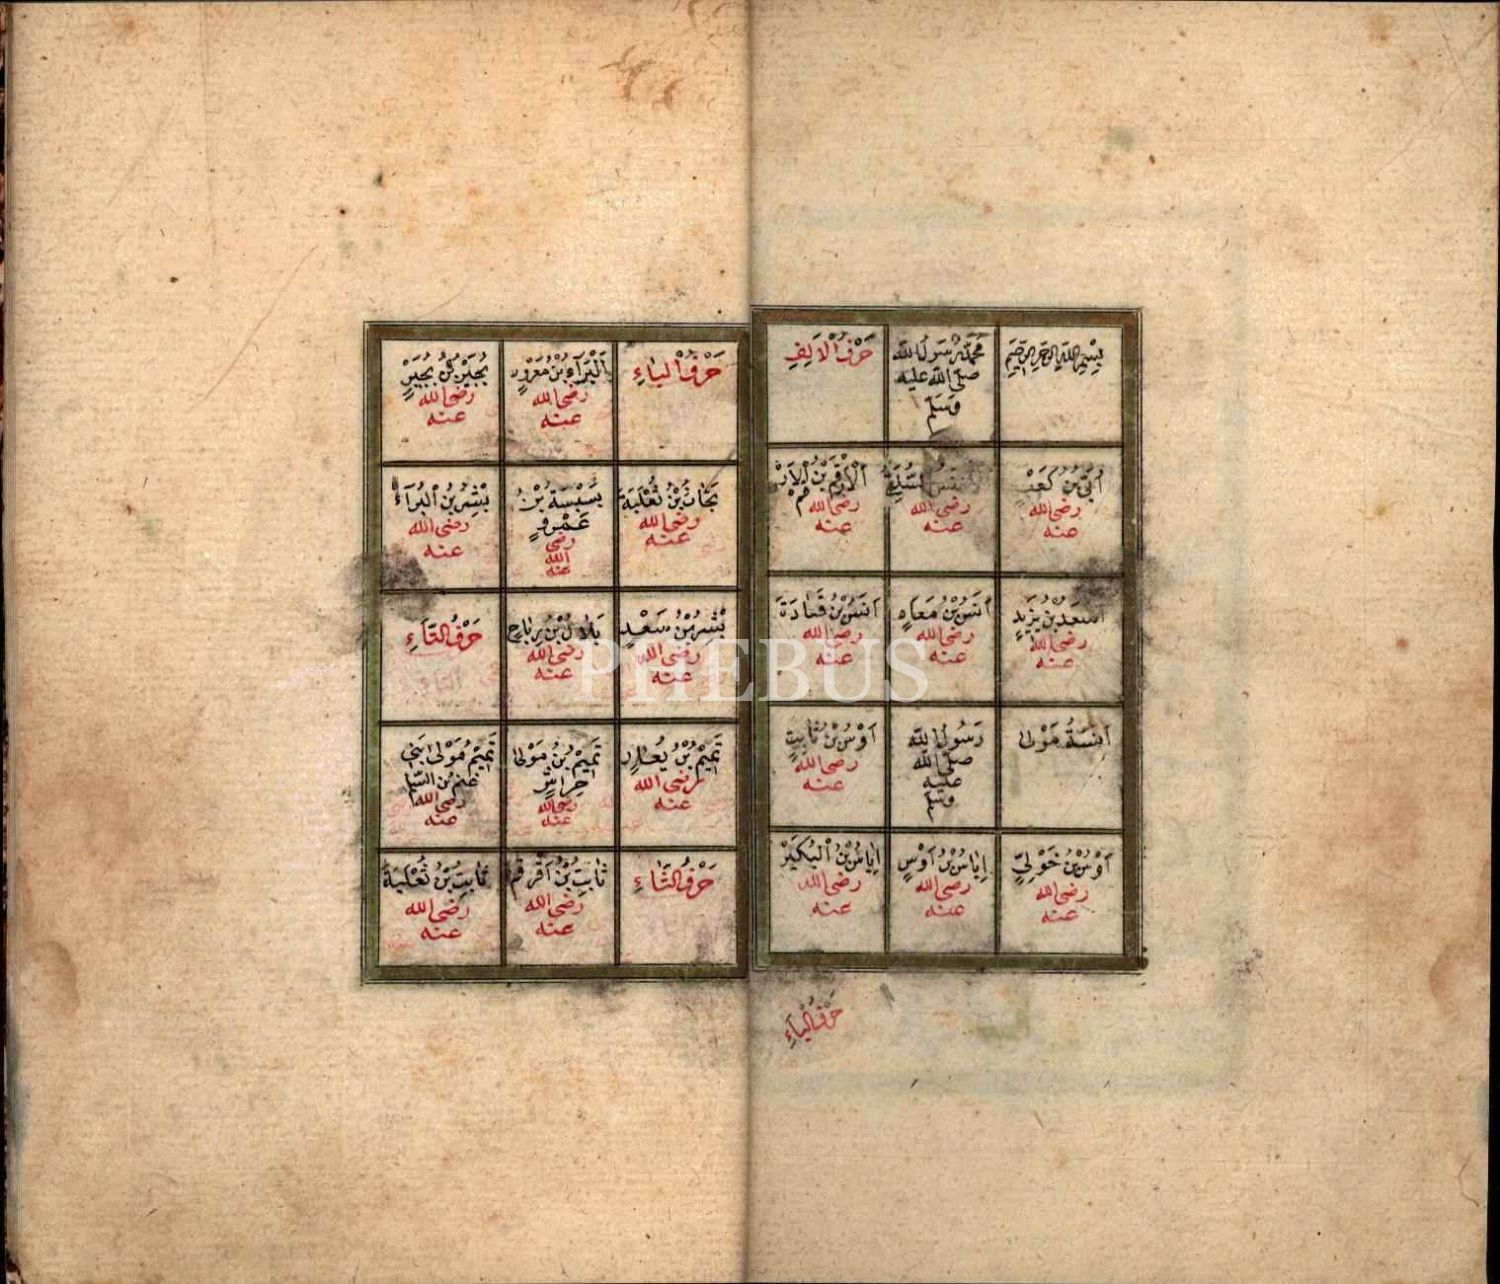 بِسْمِ اللّٰهِ الرَّحْمٰنِ الرَّحِيمِ
مُحَمَّدٌ رَسُولُ اللّٰه
صلّى اللّٰه عليه
وَسَلَّم
حَرْفُ الْاَلِفِ
اُبَيُّ بْنُ كَعْبٍ
رضى الله
عنه
رضى الله
عنه
اَلْاَرْقَمُ بْنُ الْاَرْ
قم رضى الله
عنه
اَسْعَدُ بْنُ يَزِيدٍ
رضى الله
عنه
اَنَسُ بْنُ مَعَاذٍ
رضى الله
عنه
اَنَسُ بْنُ قَتَادَةَ
رضى الله
عنه
اَنَسَةُ مَوْلٰى
رَسُولِ اللّٰه
صلّى اللّٰه
عليه
وسلّم
اَوْسُ بْنُ ثَابِتٍ
رضى الله
عنه
اَوْسُ بْنُ خَوْلِيٍّ
رضى الله
عنه
اِيَاسُ بْنُ اَوْسٍ
رضى الله
عنه
اِيَاسُ بْنُ الْبُكَيْرِ
رضى الله
عنه
حَرْفُ الْبَاءِ
حَرْفُ الْبَاءِ
اَلْبَرَاءُ بْنُ مَعْرُورٍ
رضى الله
عنه
بُجَيْرُ بْنُ بُجَيْرٍ
رضى الله
عنه
بَحَّاثُ بْنُ ثَعْلَبَةَ
رضى الله
عنه
بَسْبَسَةُ بْنُ
عَمْرٍو
رضى
الله
عنه
بِشْرُ بْنُ الْبَرَاءِ
رضى الله
عنه
بِشْرُ بْنُ سَعْدٍ
رضى الله
عنه
بِلَالُ بْنُ رِبَاحٍ
رضى الله
عنه
حَرْفُ التَّاءِ
تَمِيمُ بْنُ يُعَارٍ
رضى الله
عنه
تَمِيمُ بْنُ مَوْلٰى
خِرَاشٍ
رضى الله
عنه
تَمِيمُ مَوْلٰى بَنِى
غنم بن السّلم
رضى الله
عنه
حَرْفُ الثَّاءِ
ثَابِتُ بْنُ اَقْرَم
رضى الله
عنه
ثَابِتُ بْنُ ثَعْلَبَةَ
رضى الله
عنه
PHEBUS